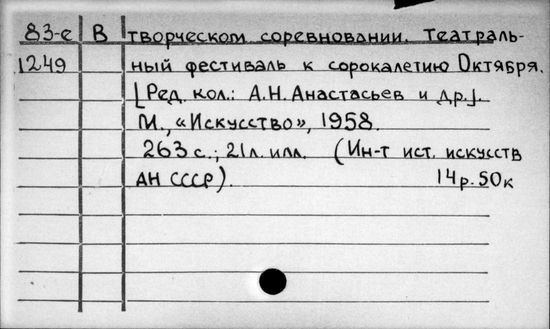 83-е В творческом соревновании. Театраль-
1249 ный фестиваль к сорокалетию Октября.
[Ред. кол.: А.Н. Анастасьев и др.].
М., «Искусство», 1958.
263 с.; 21л. илл. (Ин-т ист. искусств
АН СССР). 14р. 50к